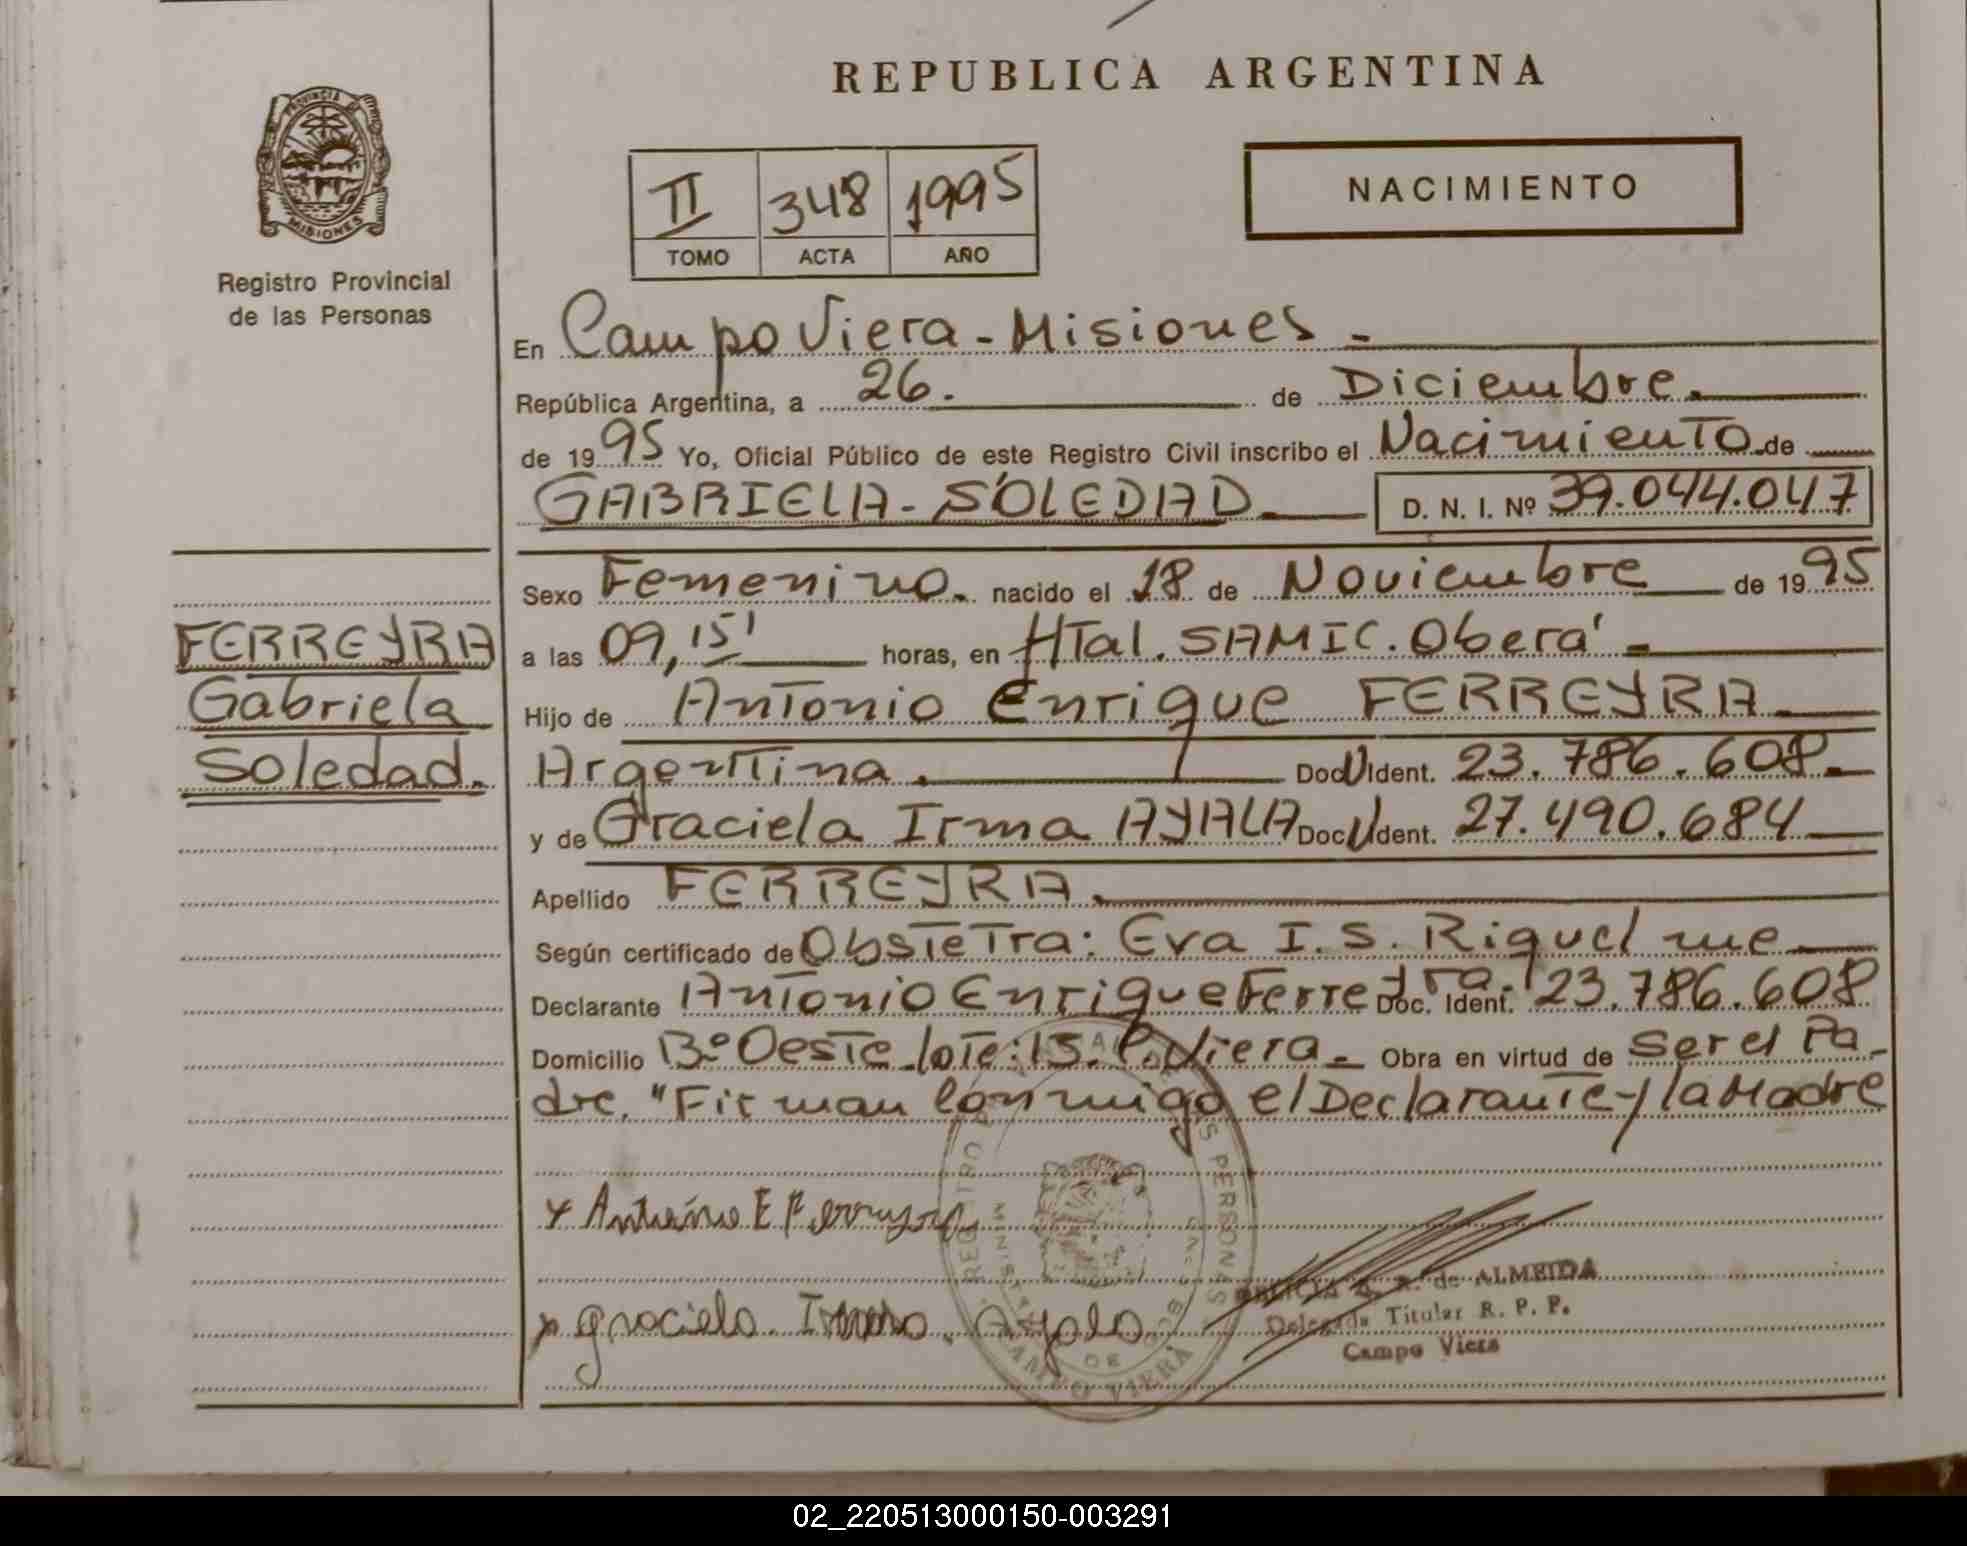 REPUBLICA ARGENTINA
PROVINCIA DE
MISIONES
Registro Provincial
de las Personas
II 348 1995
TOMO ACTA AÑO
NACIMIENTO
En Campo Viera - Misiones -
República Argentina, a 26. de Diciembre.
de 1995 Yo, Oficial Público de este Registro Civil inscribo el Nacimiento de
GABRIELA - SOLEDAD D. N. I. Nº 39.044.047
FERREYRA
Gabriela
Soledad.
Sexo Femenino. nacido el 18 de Noviembre de 1995
a las 09,15' horas, en HTal. SAMIC. Oberá -
Hijo de Antonio Enrique FERREYRA
Argentina. Doc U Ident. 23.786.608.
y de Graciela Irma AYALA Doc U Ident. 27.490.684
Apellido FERREYRA.
Según certificado de Obstetra: Eva I. S. Riquelme
Declarante Antonio Enrique Ferreyra. Doc. Ident. 23.786.608
Domicilio Bº Oeste lote: 15. C. Viera. Obra en virtud de ser el Pa-
dre. "Firman conmigo el Declarante y la Madre
x Antonio E Ferreyra
x Graciela Irma Ayala
de ALMEIDA
Delegada Titular R. P. P.
Campo Viera
REGISTRO PERSONAS
CAMPO VIERA
02_220513000150-003291